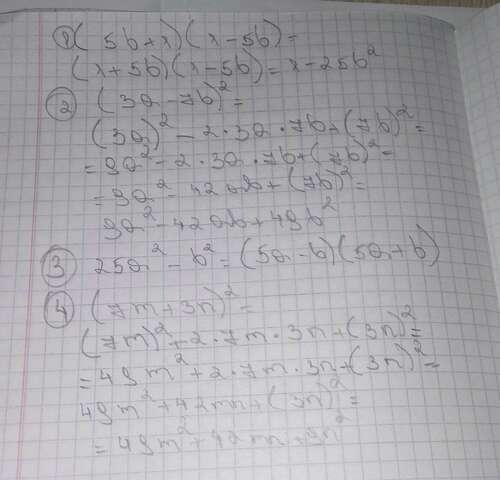 ① (5b+x)(x-5b)=
(x+5b)(x-5b)=x-25b²
② (3a-7b)²=
(3a)²-2·3a·7b+(7b)²=
=9a²-2·3a·7b+(7b)²=
=9a²-42ab+(7b)²=
9a²-42ab+49b²
③ 25a²-b²=(5a-b)(5a+b)
④ (7m+3n)²=
(7m)²+2·7m·3n+(3n)²=
=49m²+2·7m·3n+(3n)²=
49m²+42mn+(3n)²=
=49m²+42mn+9n²